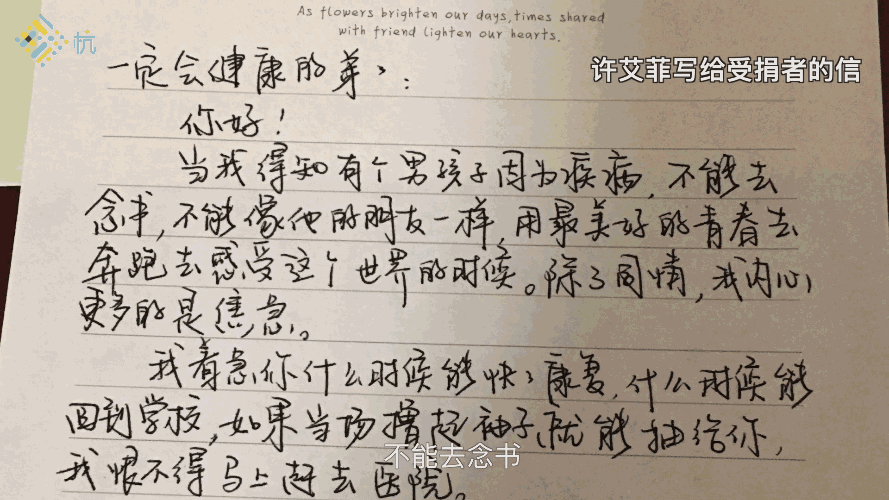 As flowers brighten our days, times shared
with friend lighten our hearts.
杭
许艾菲写给受捐者的信
一定会健康的弟弟:
你好!
当我得知有个男孩子因为疾病,不能去
念书,不能像他的朋友一样,用最美好的青春去
奔跑去感受这个世界的时候。除了同情,我内心
更多的是焦急。
我着急你什么时候能快快康复,什么时候能
回到学校,如果当场撸起袖子就能抽给你,
我恨不得马上赶去医院。
不能去念书